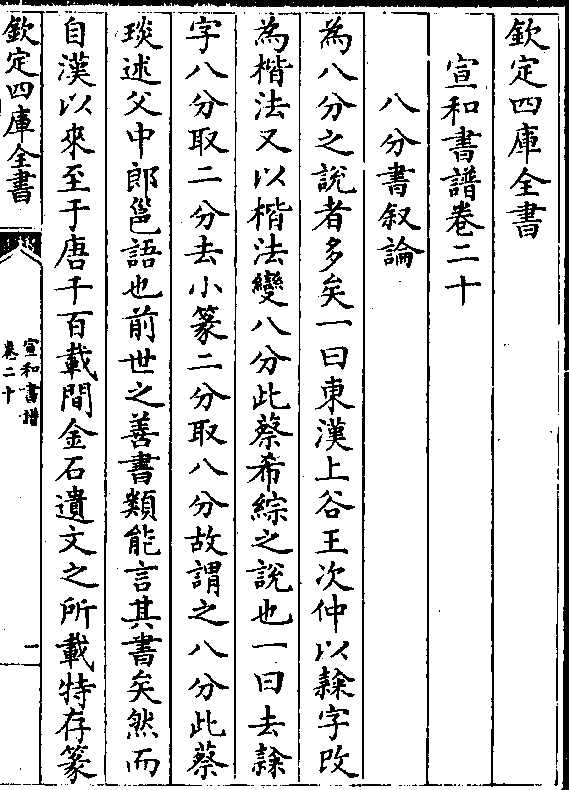 欽定四庫全書
宣和書譜卷二十
八分書叙論
為八分之說者多矣一曰東漢上谷王次仲以隸字改
為楷法又以楷法變八分此蔡希綜之說也一曰去隸
字八分取二分去小篆二分取八分故謂之八分此蔡
琰述父中郎邕語也前世之善書類能言其書矣然而
自漢以來至于唐千百載間金石遺文之所載特存篆
欽定四庫全書
宣和書譜
卷二十
一